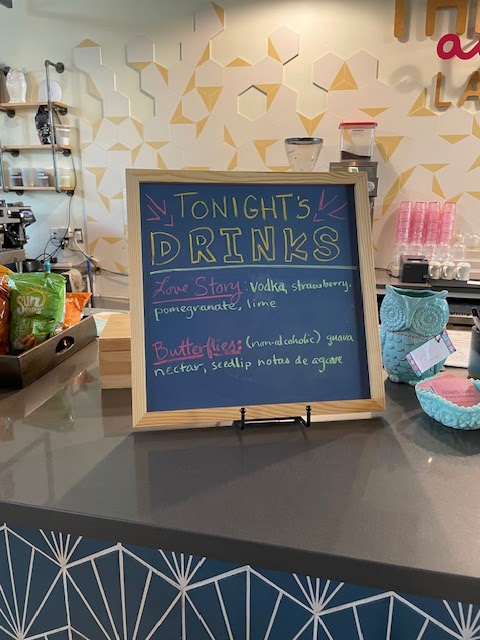 TONIGHT'S
DRINKS
Love Story: vodka, strawberry,
pomegranate, lime
Butterflies: (non-alcoholic) guava
nectar, seedlip notas de agave
SUN